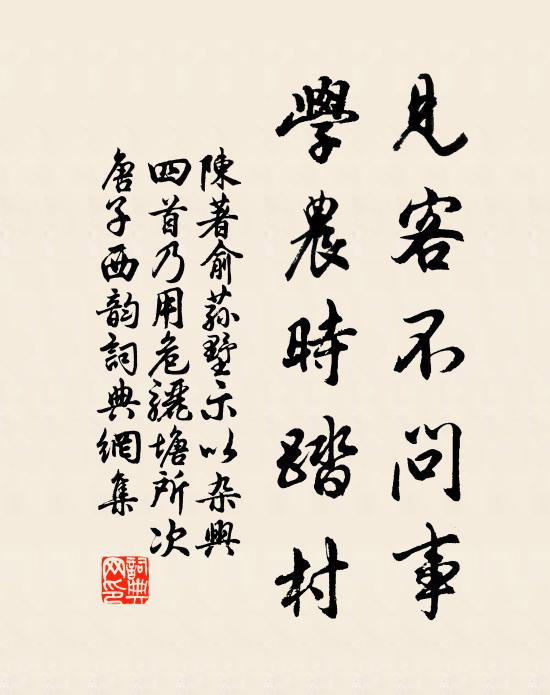 見客不问事
學農時踏村
陳著俞荪墅示以杂興
四首乃用危驪塘所次
唐子西韵詞典網集
詞典网印